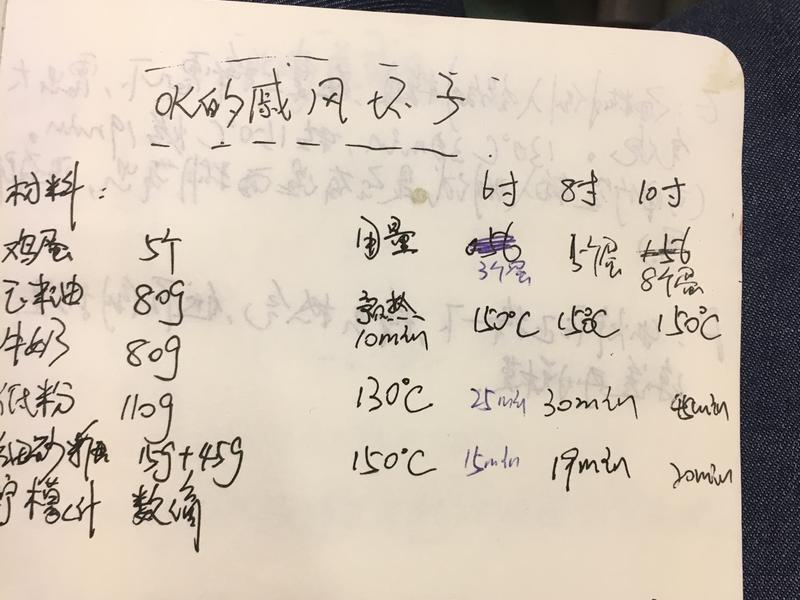 OK的戚风坯子
材料：
6寸 8寸 10寸
鸡蛋 5个
用量 3个蛋 5个蛋 8个蛋
玉米油 80g
预热 10min 150℃ 150℃ 150℃
牛奶 80g
低粉 110g
130℃ 25min 30min 45min
细砂糖 15g+45g
150℃ 15min 19min 20min
柠檬汁 数滴